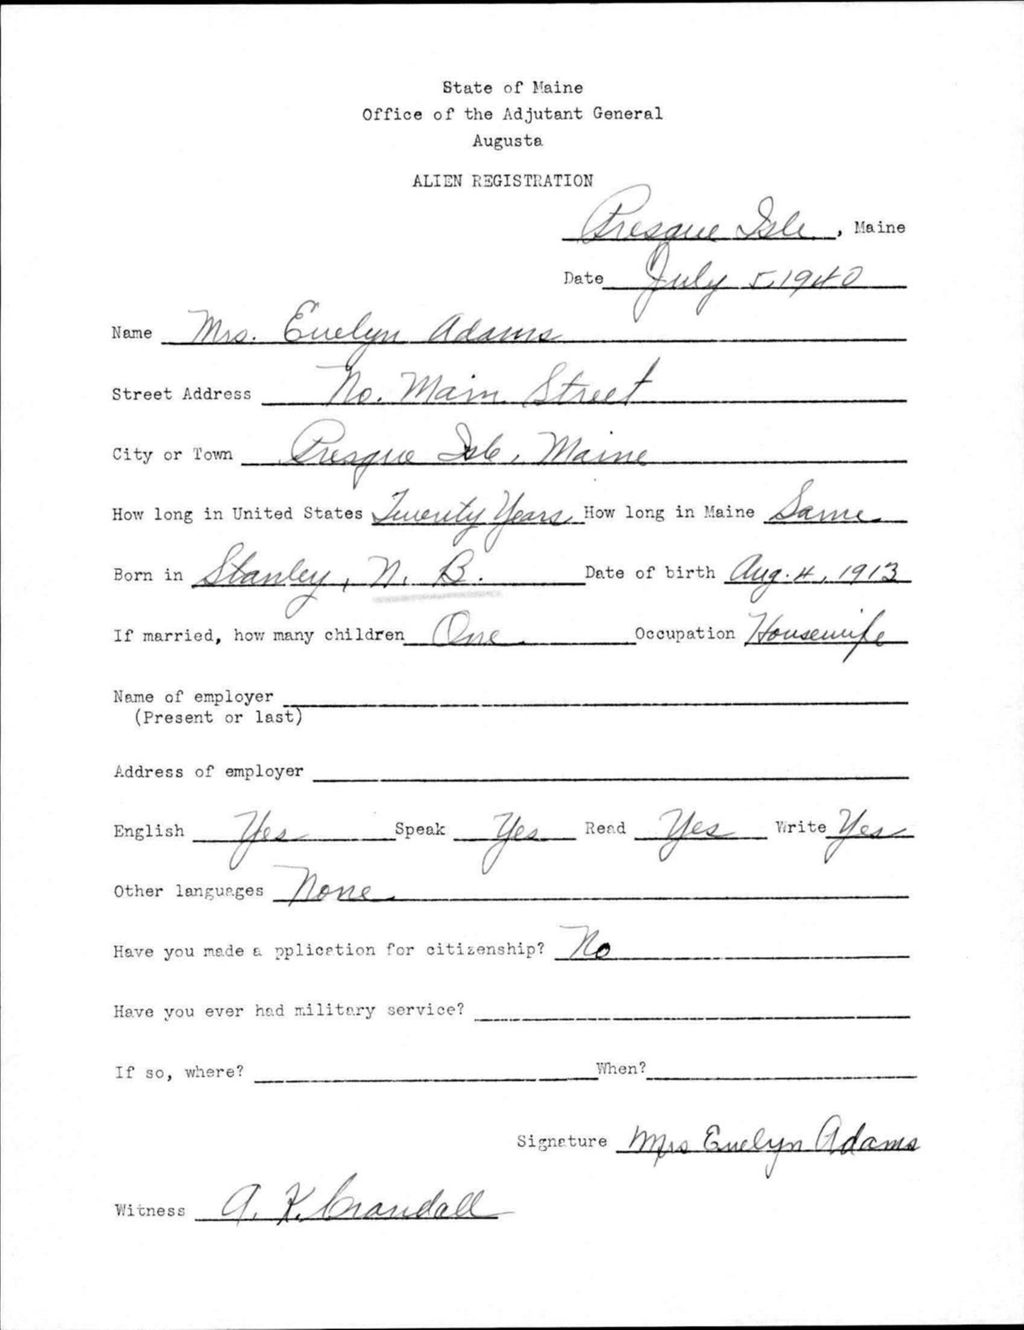 State of Maine
Office of the Adjutant General
Augusta
ALIEN REGISTRATION
Presque Isle, Maine
Date July 5, 1940
Name Mrs. Evelyn Adams
Street Address No. Main Street
City or Town Presque Isle, Maine
How long in United States Twenty Years How long in Maine Same
Born in Stanley, N. B. Date of birth Aug. 4, 1913
If married, how many children One Occupation Housewife
Name of employer
(Present or last)
Address of employer
English Yes Speak Yes Read Yes Write Yes
Other languages None
Have you made a pplication for citizenship? No
Have you ever had military service?
If so, where? When?
Signature Mrs Evelyn Adams
Witness A. K. Crandall